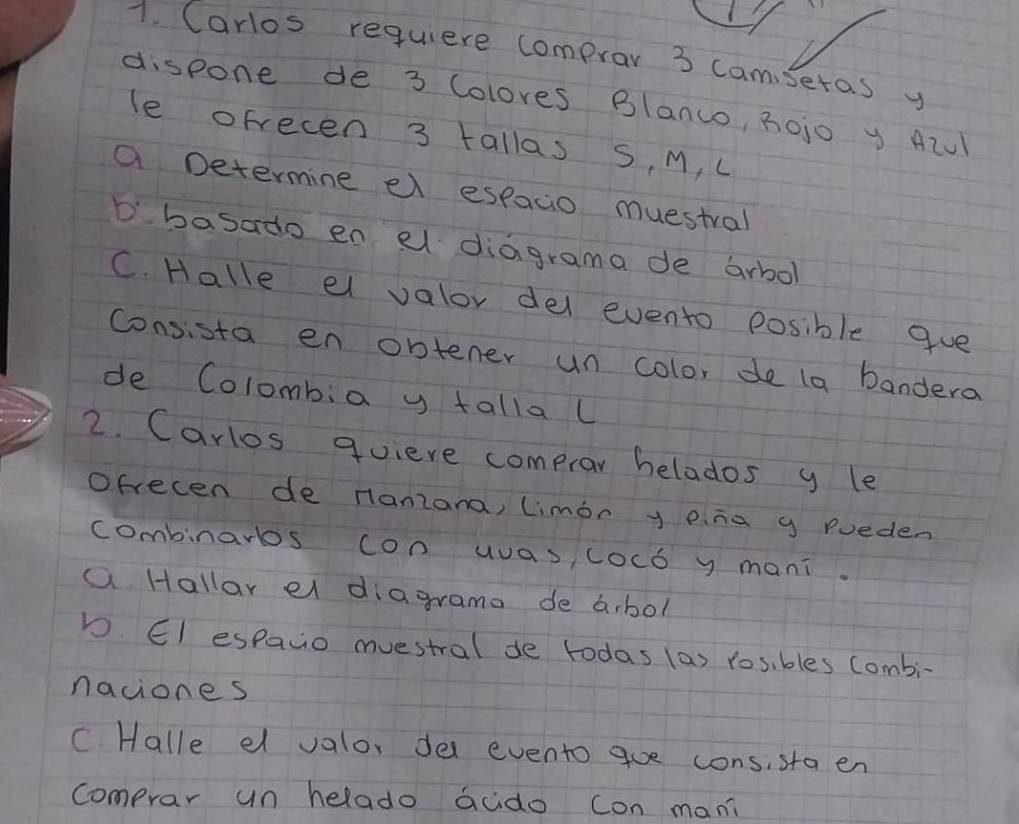 1. Carlos requiere comprar 3 camisetas y
dispone de 3 Colores Blanco, Rojo y Azul
le ofrecen 3 tallas S, M, L
a Determine el espacio muestral
b. basado en el diágrama de árbol
C. Halle el valor del evento posible que
Consista en obtener un color de la bandera
de Colombia y talla L
2. Carlos quiere comprar helados y le
Ofrecen de Manzana, Limón y piña y pueden
combinarlos con uvas, cocó y maní.
a Hallar el diagrama de árbol
b. El espacio muestral de todas las posibles combi-
naciones
C. Halle el valor del evento que consista en
comprar un helado ácido con maní